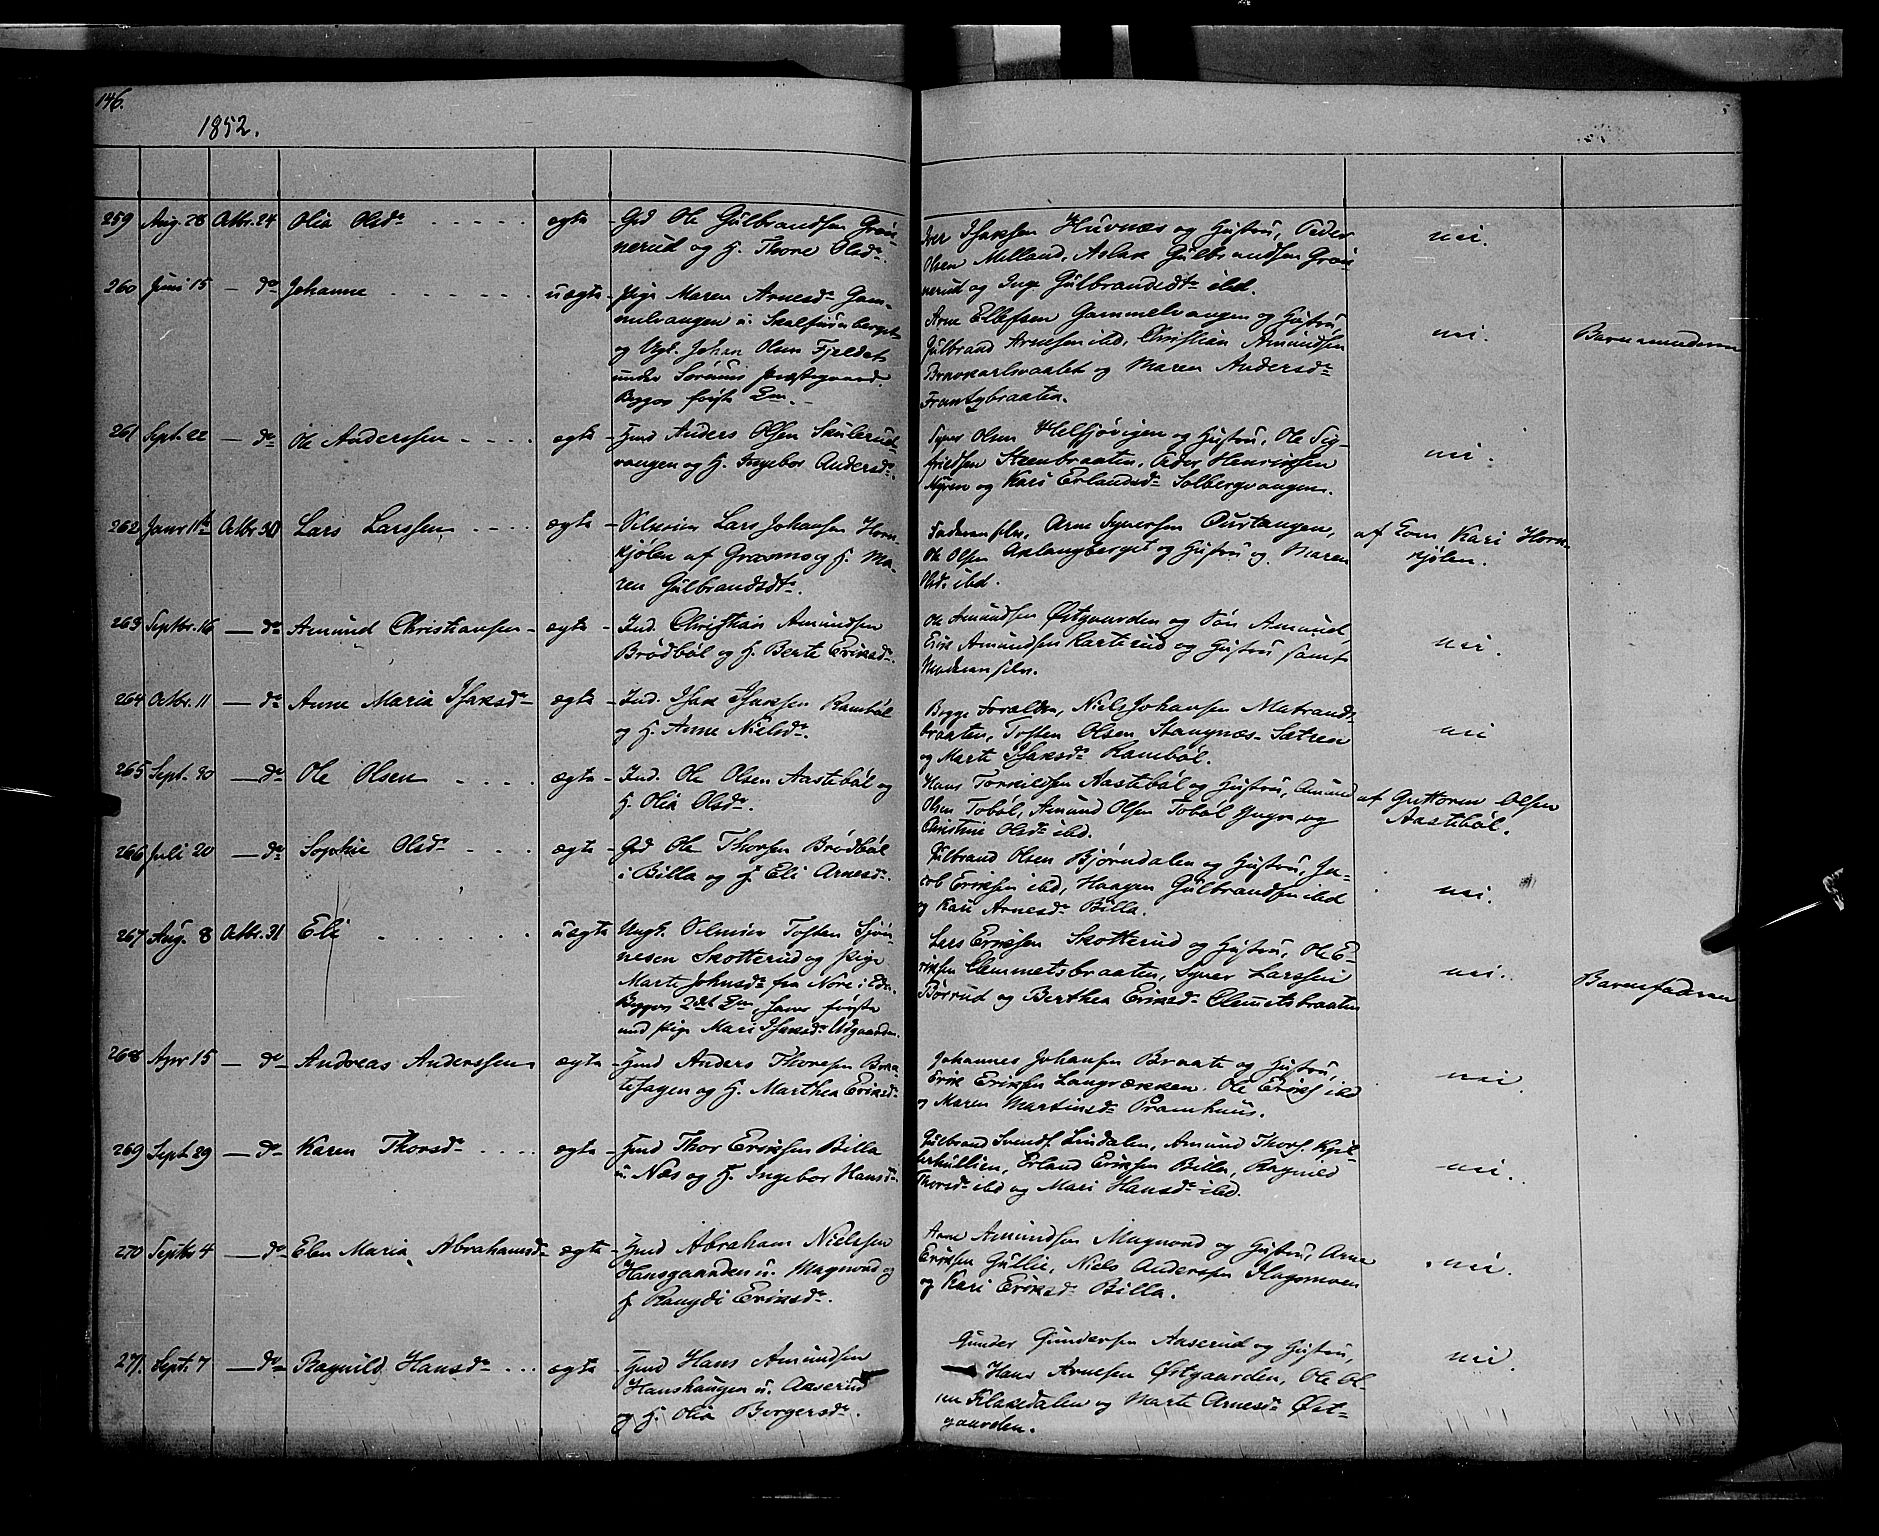 146.
1852.
259 Aug. 28 Octbr. 24 Olia Olsdr ægte Grd Ole Gülbrandsen Grøn-
nerud og H. Thore Olsdr.
Iver Isaksen Huvnæs og Hustrü, Peder
Olsen Melland, Aslak Gülbrandsen Grøn-
nerud og Ing. Gülbrandsdr ibd.
nei.
260 Juni 15 — do Johanne uægte Pige Maren Arnesdr Gam-
melvangen u. Skalfurüberget
og Ungk. Johan Olsen Fjeldet
under Sørums Præstegaard.
Begges første Lm.
Arne Ellefsen Gammelvangen og Hüstrü,
Gülbrand Arnesen ibd, Christian Amündsen
og Maren Andersdr
Frantzbraaten.
nei.
Barnemoderen
261 Sept. 22 — do Ole Anderssen ægte Hmd Anders Olsen Skülerud-
vangen og H. Ingebor Andersdr.
Syver Olsen Helsjøvigen og Hustrü, Ole Sig-
friedsen Steenbraaten, Peder Henriksen
Myren og Kari Erlandsdr Solbergvangen.
nei.
262 Janr 11te Octbr 30 Lars Larssen ægte Selveier Lars Johansen Horn-
kjølen af Gravmo og H. Ma-
ren Gülbrandsdr.
Faderen selv, Arne Syversen Ourtangen,
Ole Olsen Aklangberget og Hustrü og Maren
Olsdr ibd.
af Eom Kari Horn-
kjølen.
263 Septbr. 16 — do Amünd Christiansen ægte Ind. Christian Amündsen
Brødbøl og H. Berte Eriksdr.
Ole Amündsen Østgaarden og Søn Amünd,
Erik Amündsen Karterud og Hustrü samt
Moderen selv.
nei.
264 Octbr. 11 — do Anne Maria Isaksdr ægte Ind. Isak Isaksen Rambøl
og H. Anne Nielsdr.
Begge Forældre, Niels Johansen Matrand-
braaten, Tosten Olsen Stangnæs-Sætren
og Marte Isaksdr Rambøl.
nei
265 Sept. 30 — do Ole Olsen ægte Ind. Ole Olsen Aastebøl og
H. Olia Olsdr.
Hans Torkildsen Aastebøl og Hustrü, Amünd
Olsen Tobøl, Amünd Olsen Tobøl Yngre og
Christine Olsdr ibd.
af Guttorm Olsen
Aastebøl.
266 Juli 20 — do Sophie Olsdr ægte Grd Ole Thorsen Brødbøl
i Billa og H. Eli Arnesdr.
Gülbrand Olsen Bjørndalen og Hustrü, Ja-
cob Eriksen ibd, Haagen Gülbrandsen ibd
og Kari Arnesdr Billa.
nei.
267 Aug. 8 Octbr. 31 Eli uægte Ungk. Selveier Tosten Sjøn-
nesen Skotterud og Pige
Marte Johnsdr fra Nore i Eda.
Begges 2det Lm, hans første
med Pige Mari Isaksdr Udgaarden.
Lars Eriksen Skotterud og Hustrü, Ole E-
riksen Clemmetsbraaten, Syver Larssen
Børrud og Berthea Eriksdr Clemetsbraaten
nei.
Barnefaderen
268 Apr 15 — do Andreas Anderssen ægte Hmd Anders Thoresen Braa-
tehagen og H. Marthea Eriksdr
Johannes Johansen Braate og Hustrü,
Erik Eriksen Langrækken. Ole Eriks. ibd
og Maren Martinsdr Pramhuus.
nei.
269 Sept 29 — do Karen Thorsdr ægte Hmd Thor Eriksen Billa
u. Næs og H. Ingebor Hansdr
Gülbrand Svends. Lindalen, Amünd Thors. Kjel-
lerhullien, Erland Eriksen Billa, Ragnild
Thorsdr ibd og Mari Hansdr ibd.
nei.
270 Septbr 4 — do Elen Maria Abrahamsdr ægte Hmd Abraham Nielssen
Hansgaarden u. Magnord og
H. Rangdi Eriksdr.
Arne Amündsen Magnord og Hustrü, Arne
Eriksen Güllie, Niels Anderssen Hagsmoen
og Kari Eriksdr Billa.
nei.
271. Sept. 7 — do Ragnild Hansdr ægte Hmd Hans Amündsen
Hanshaugen u. Aaserud
og H. Olia Borgersdr.
Gunder Gündersen Aaserud og Hustrü,
Hans Arnesen Østgaarden, Ole Ol-
sen Flakkedalen og Marte Arnesdr Øst-
gaarden.
nei.